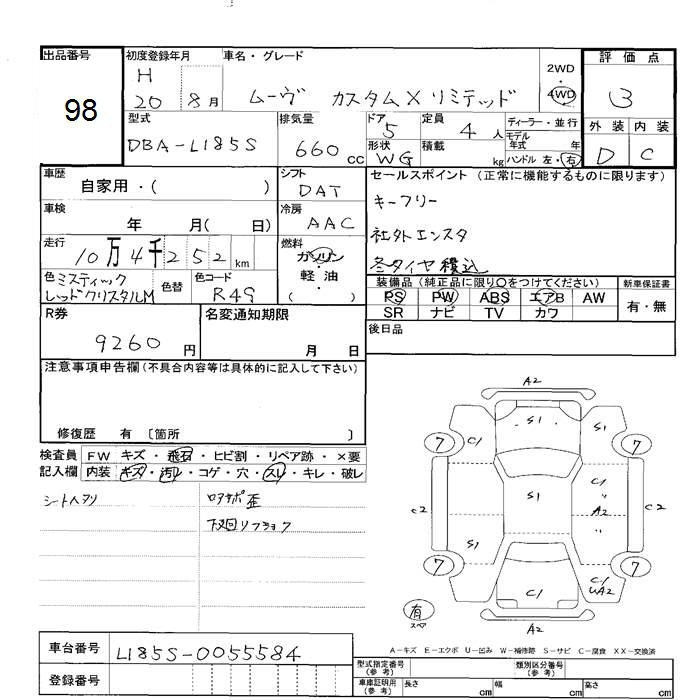 出品番号 初度登録年月 車名・グレード 2WD 評価点
98 H 20 8月 ムーヴ カスタムXリミテッド ・ 4WD 3
型式 排気量 ドア 定員 ディーラー・並行 外装 内装
DBA-L185S 660 cc 5 4 人 モデル年式 年 D C
形状 積載 ハンドル 左・右
WG kg
車歴 シフト セールスポイント (正常に機能するものに限ります)
自家用・( ) DAT キーフリー
車検 冷房
年 月( 日) AAC 社外エンスタ
走行 燃料
10万4千252km ガソリン・軽油 ( ) 冬タイヤ積込
色 ミスティックレッドクリスタルM 色替 色コード R49
装備品 (純正品に限り○をつけてください) 新車保証書
PS PW ABS エアB AW 有・無
SR ナビ TV カワ
R券 名変通知期限 後日品
9260円 月 日
注意事項申告欄(不具合内容等は具体的に記入して下さい)
修復歴 有 〔箇所 〕
検査員 FW キズ・飛石・ヒビ割・リペア跡・×要
記入欄 内装 キズ・汚レ・コゲ・穴・スレ・キレ・破レ
シートヘタリ ロアサポ歪
下回リフショク
A2
C1 S1 S1
7 7
C1
C2 S1 A2 C2
〃
S1
7 7
C1 C1 UA2
有 スペア A2
A-キズ E-エクボ U-凹み W-補修跡 S-サビ C-腐食 XX-交換済
車台番号 L185S-0055584
登録番号
型式指定番号(参考) 類別区分番号(参考)
車庫証明用(参考) 長さ cm 幅 cm 高さ cm